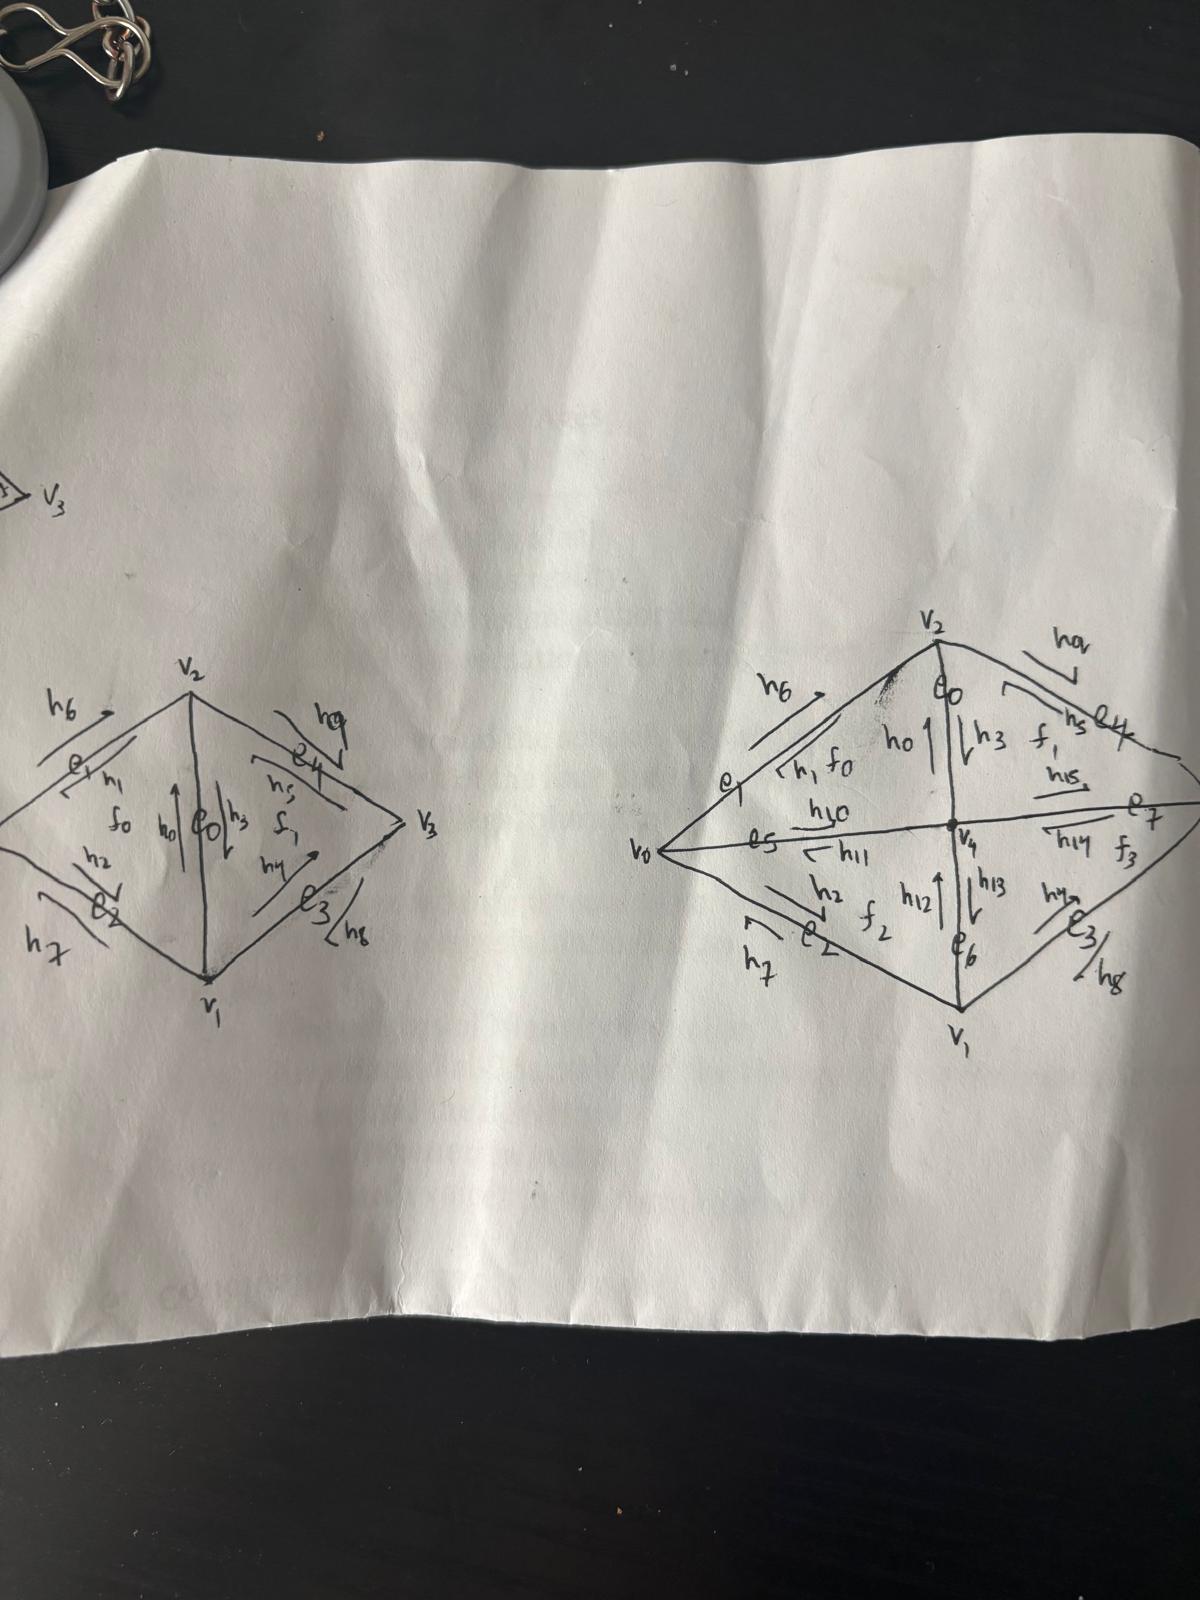 v3
v2
h6
h9
e1
h1
e4
h5
f0
h0
e0
h3
f1
v3
h2
h4
e2
e3
h7
h8
v1
v2
h9
h6
e0
h5
e4
h0
h3
f1
h1
f0
e1
h15
h10
e7
v0
e5
h11
v4
h14
f3
h2
h12
h13
h4
f2
e2
e3
h7
e6
h8
v1